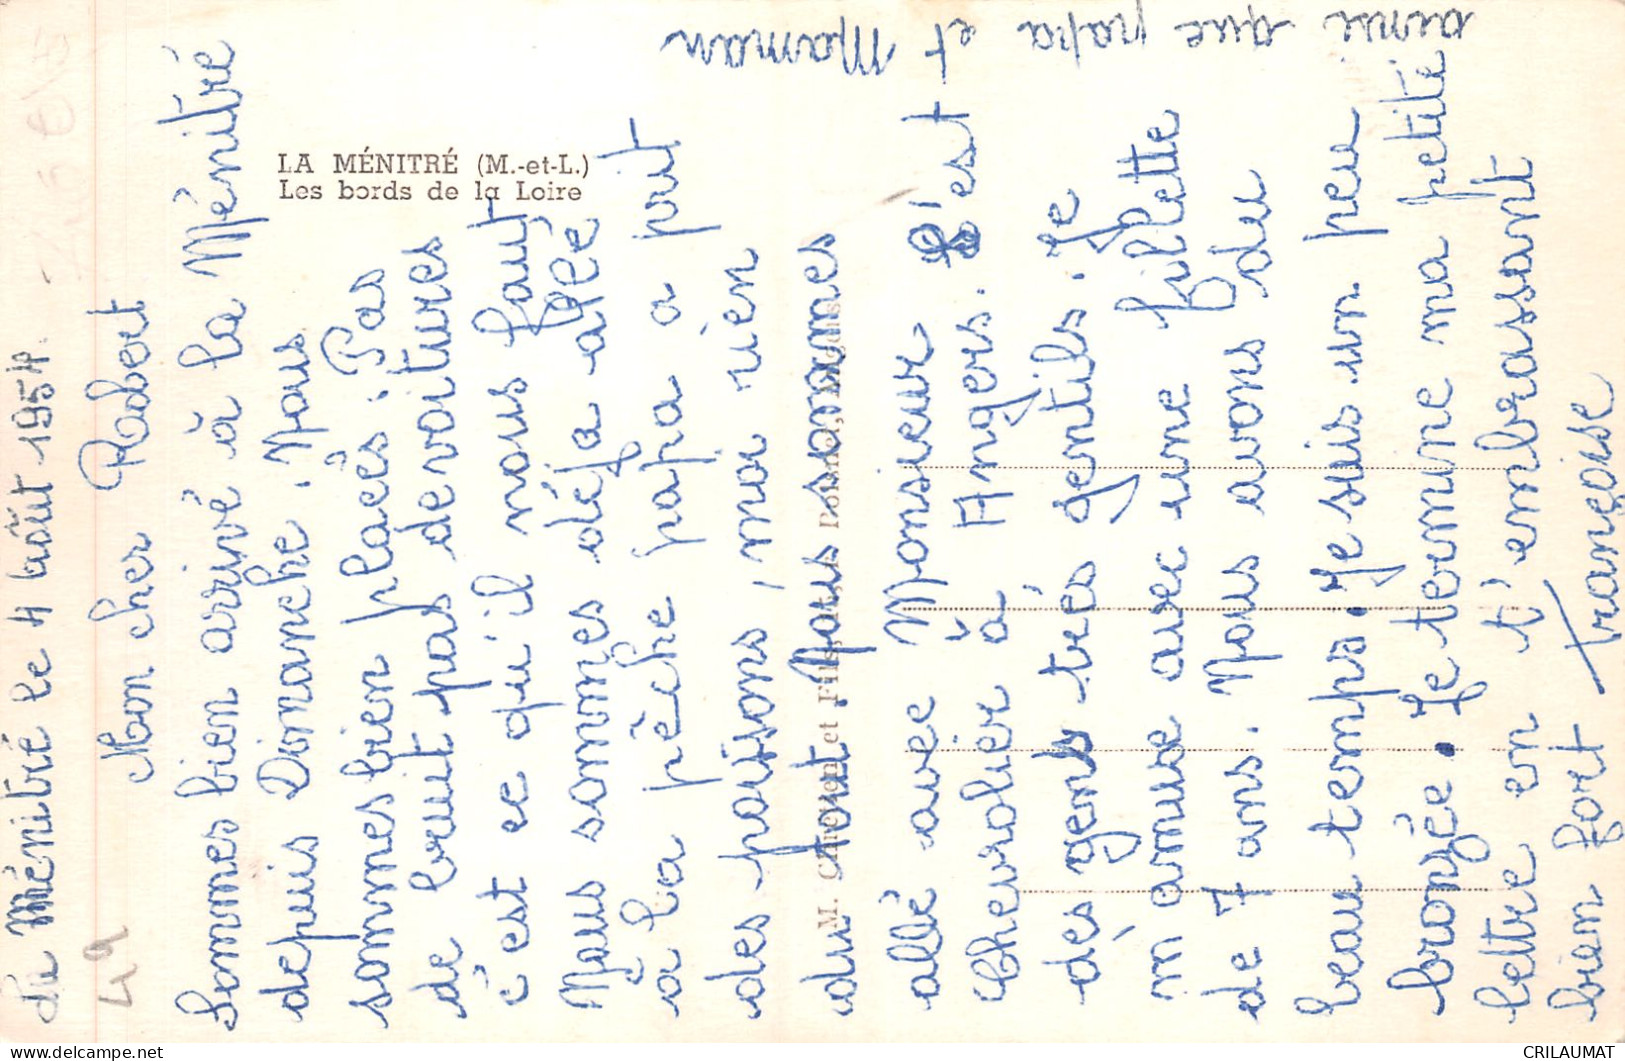 La Ménitré le 4 août 1954.
Mon cher Robert
Sommes bien arrivé à la Ménitré
depuis Dimanche. Nous
sommes bien placés. Pas
de bruit pas de voitures
c'est ce qu'il nous faut
Nous sommes déja allé
à la pèche papa a prit
des poissons, moi rien
du tout. Nous sommes
allé avec Monsieur
Chevrolier à Angers. C'est
des gens très gentils. Je
m'amuse avec une fillette
de 7 ans. Nous avons du
beau temps. Je suis un peu
bronzée. Je termine ma petite
lettre en t'embrassant
bien fort Françoise
ainsi que papa et Maman
LA MÉNITRÉ (M.-et-L.)
Les bords de la Loire
49
CRILAUMAT